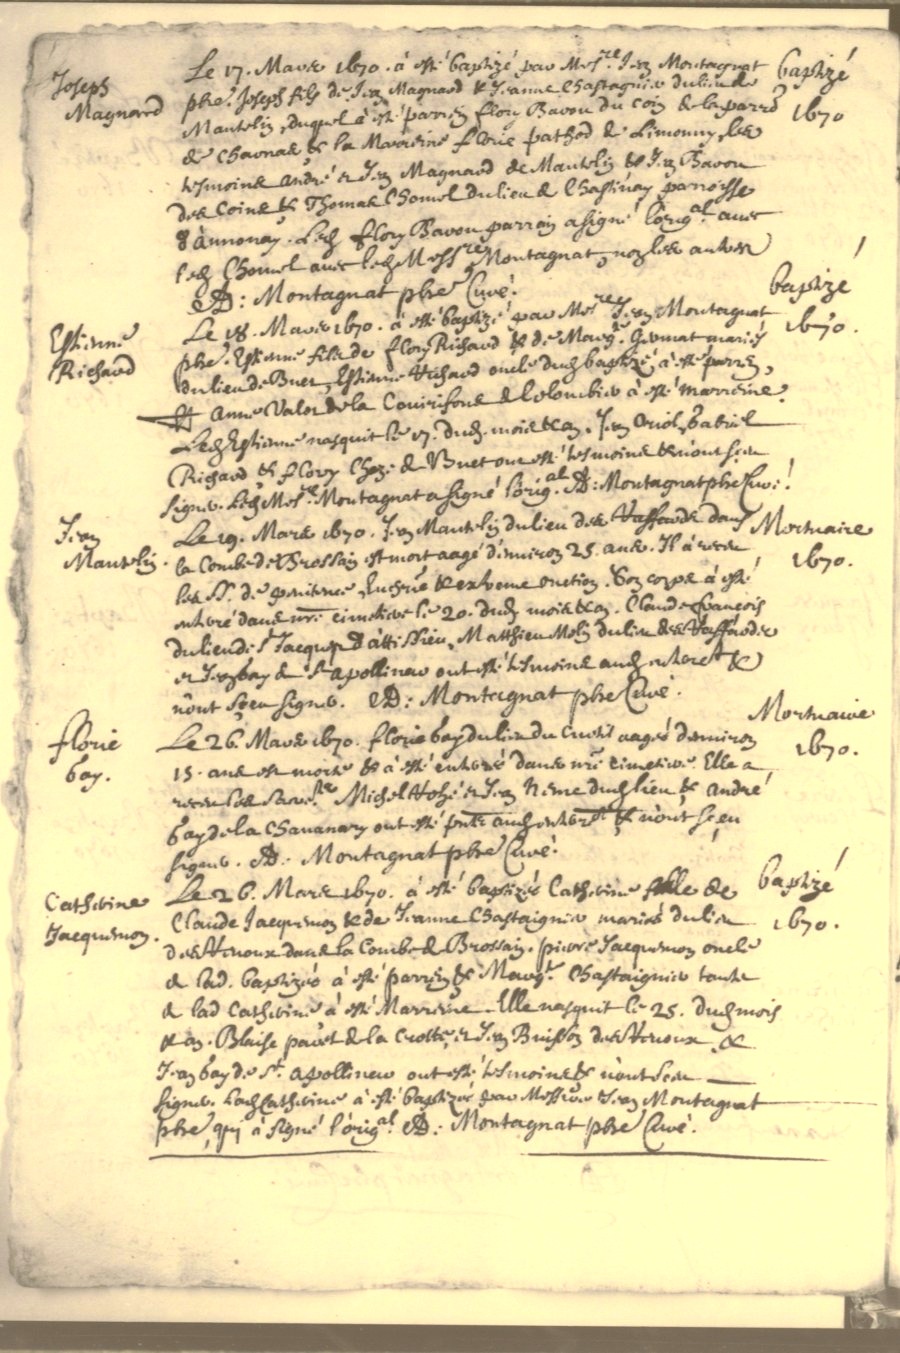 Joseph
Magnard
Le 17. Mars 1670. à esté baptizé par Mes.re Jean Montagnat
pbre. Joseph fils de Jean Magnard & Jeanne Chastagnier du lieu de
Mantelin, duquel a esté parrin flory Bavou du coin de la parr.
de Charnas, & la Marreine florie pathod de Limonny, les
tesmoins andré et Jean Magnard de Mantelin & Jean Bavou
des Coins & Thomas Chomel du lieu de Chastinay parroisse
d'Annonay. Led. flory Bavou parrain a signé l'orig.al avec
led. Chomel avec led. Mess.re Montagnat, non les autres
D: Montagnat pbre Curé.
baptizé
1670
Estienne
Richard
Le 18. Mars 1670. à esté baptizé par Mes.re Jean Montagnat
pbre. Estienne fils de flory Richard & de Marg.te mariés
du lieu de Buet, Estienne Richard oncle dud. baptizé a esté parrin,
& Anne Valor de la de Colombier à esté marreine.
Led. Estienne nasquit le 17. dud. mois & an. Jean Oriol, Gabriel
Richard & flory de Buet ont esté tesmoins & n'ont sceu
signer. Led. Mes.re Montagnat a signé l'orig.al D: Montagnat pbre Curé.
baptizé
1670.
Jean
Mantelin.
Le 19. Mars 1670. Jean Mantelin du lieu des dans
la Combe de Brossain est mort aagé d'environ 25. ans. Il à receu
les St. de penitence, & extreme onction. Son corps à esté
enterré dans nre cimetiere le 20. dud. mois & an. Claude François
du lieu de St Jacques d'attissieu, Matthieu du lieu des
et Jean bay de St apollinar ont esté tesmoins aud. enterre.t &
n'ont sceu signer. D: Montagnat pbre Curé.
Mortuaire
1670.
florie
bay.
Le 26. Mars 1670. florie bay du lieu du aagée d'environ
15. ans est morte & à esté enterrée dans nre cimetiere. Elle a
receu les Michel et Jean dud. lieu & andré
bay de la Chavanary ont esté pnts aud. enterre.t & n'ont sceu
signer. D: Montagnat pbre Curé.
Mortuaire
1670.
Catherine
Jacquemon.
Le 26. Mars 1670. à esté baptizée Catherine fille de
Claude Jacquemon & de Jeanne Chastaignier mariés du lieu
des dans la Combe de Brossain. pierre Jacquemon oncle
de lad. baptizée à esté parrin & Marg.te Chastaignier tante
de lad Catherine à esté Marreine. Elle nasquit le 25. dud. mois
& an. Blaise de la Crotte, et Jean Buisson des &
Jean bay de St. apollinar ont esté tesmoins & n'ont sceu
signer. Lad. Catherine à esté baptizée par Messire Jean Montagnat
pbre, qui à signé l'orig.al D: Montagnat pbre Curé.
baptizé
1670.